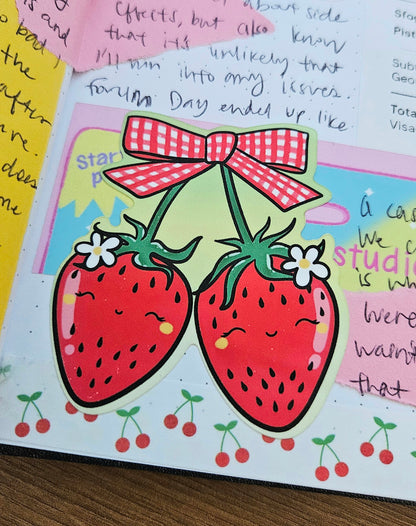 about side
effects, but also know
that it's unlikely that
I'll run into any issues.
Day ended up like
so bad I
is and
the
after
re.
does
me
Star
studi
a
we
is wh
were
want
that
Sto
Pist
Sub
Geo
Total
Visa